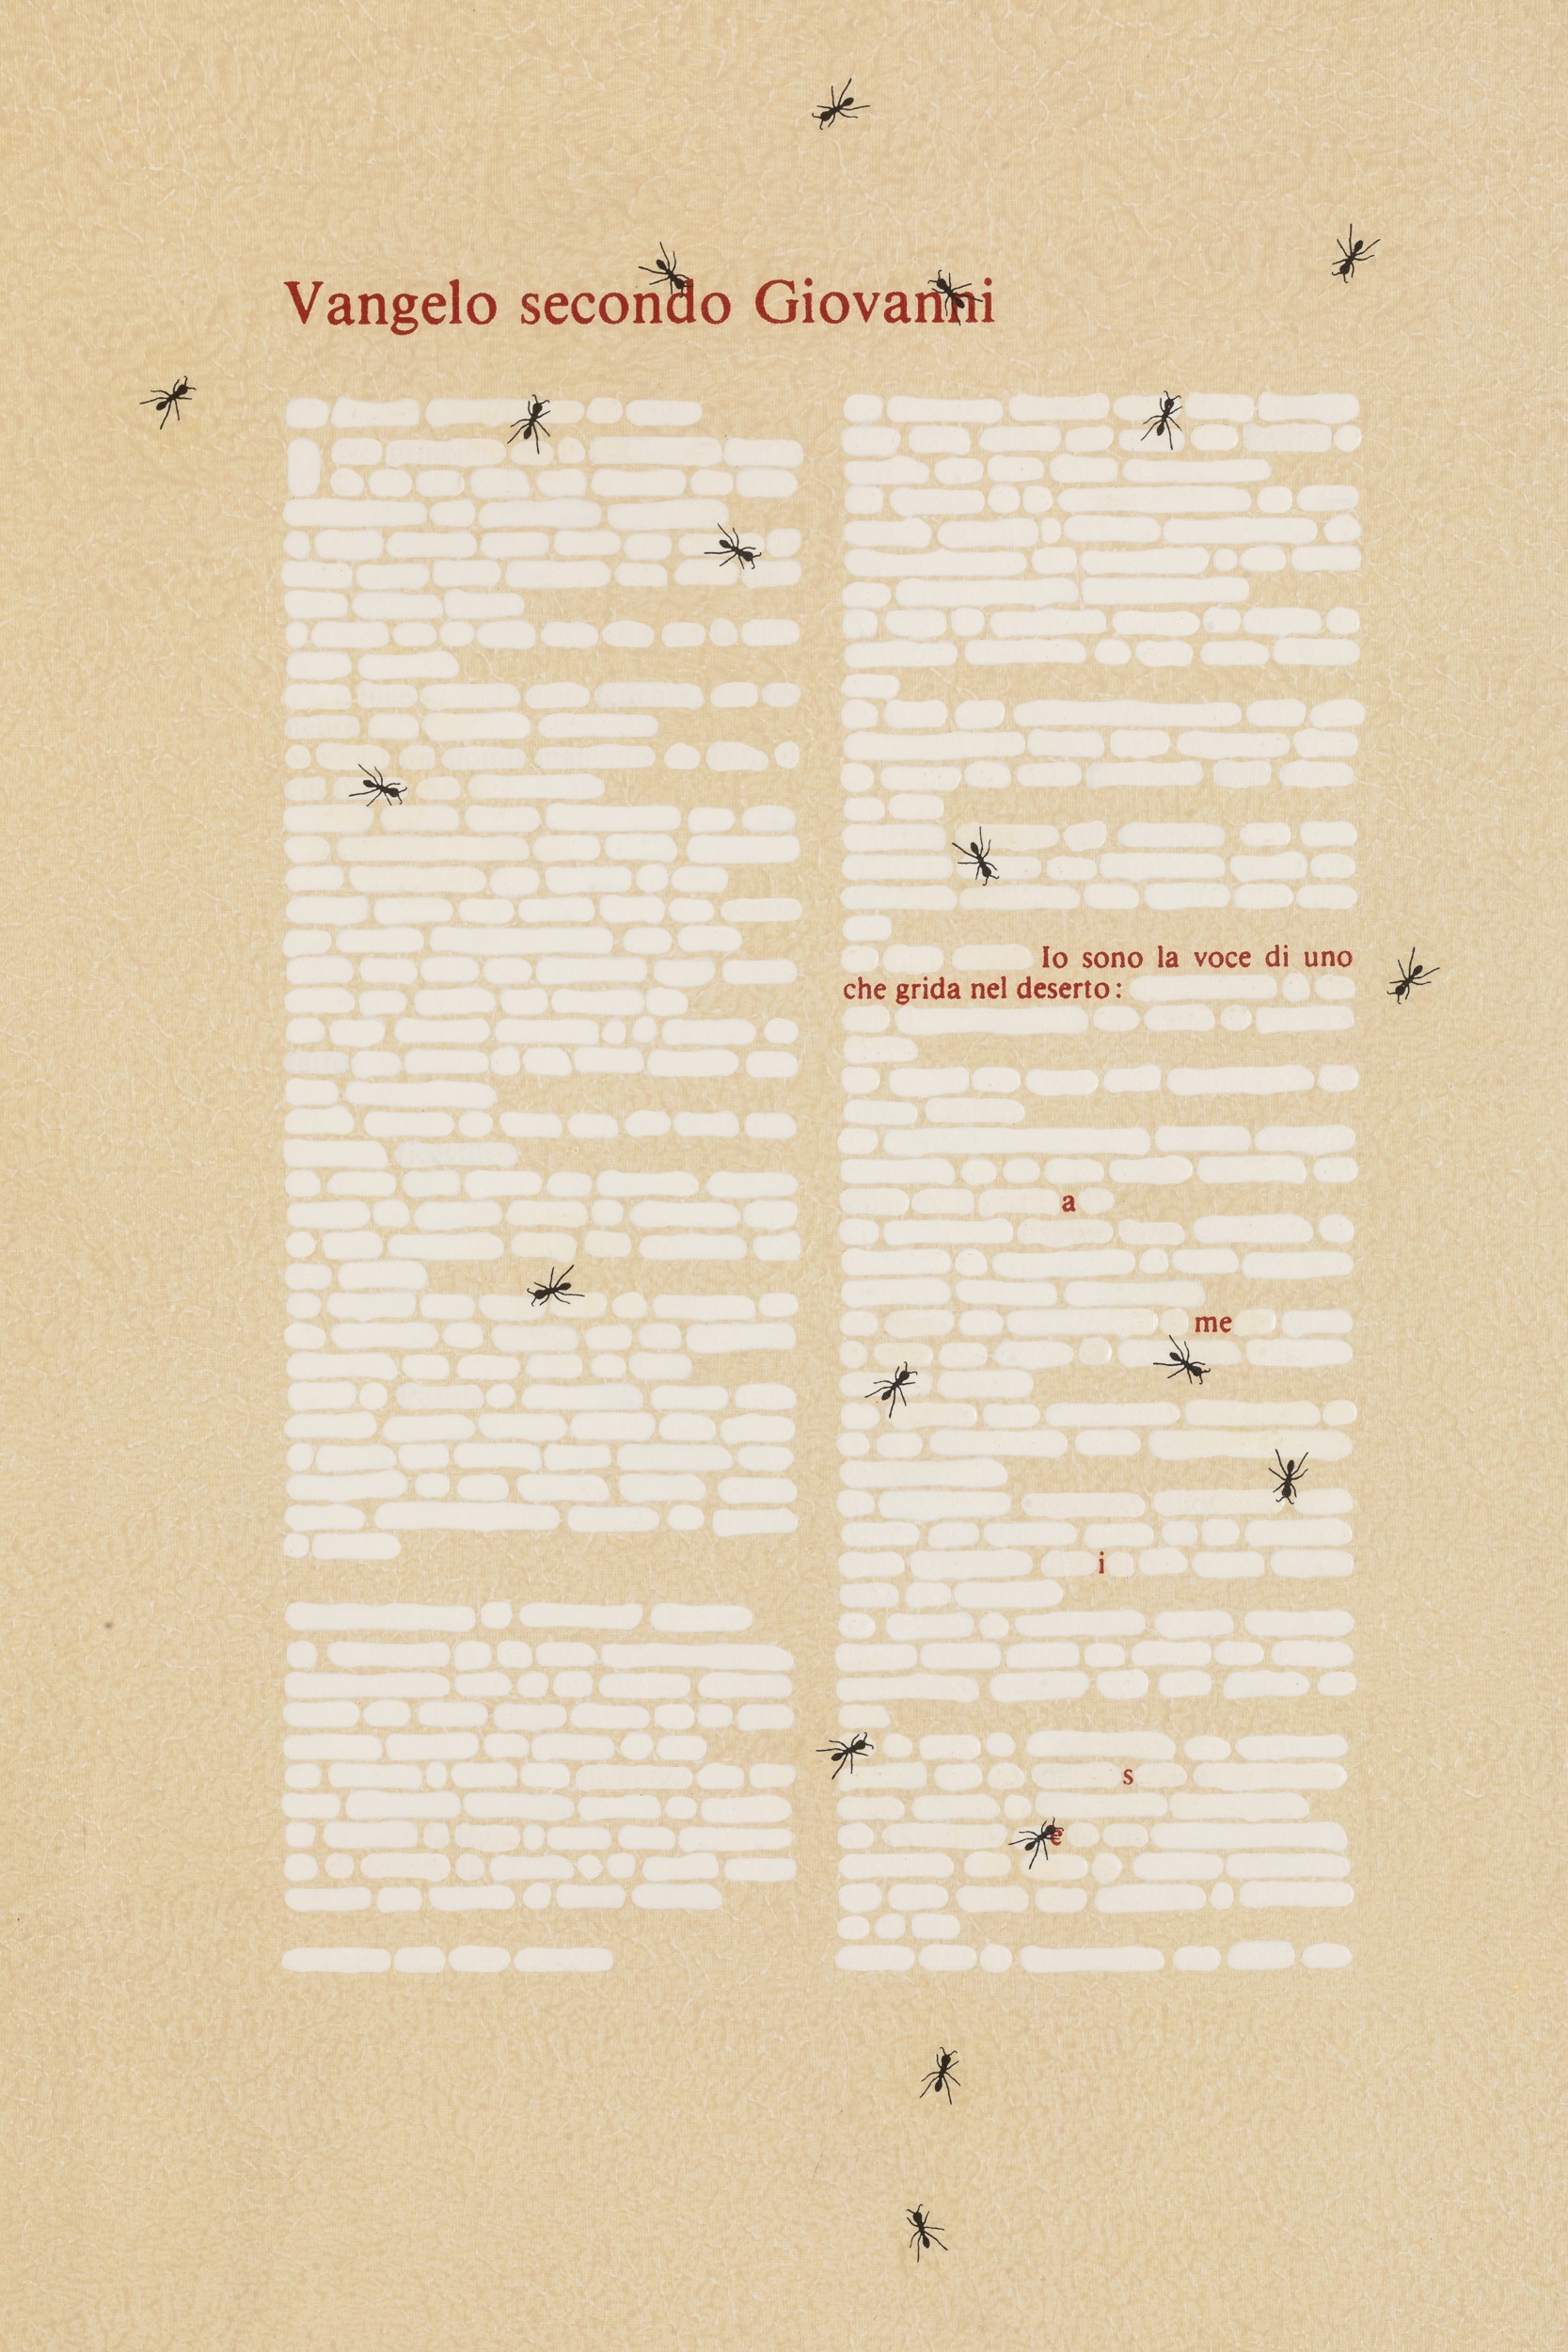 Vangelo secondo Giovanni
Io sono la voce di uno
che grida nel deserto:
a
me
i
s
e